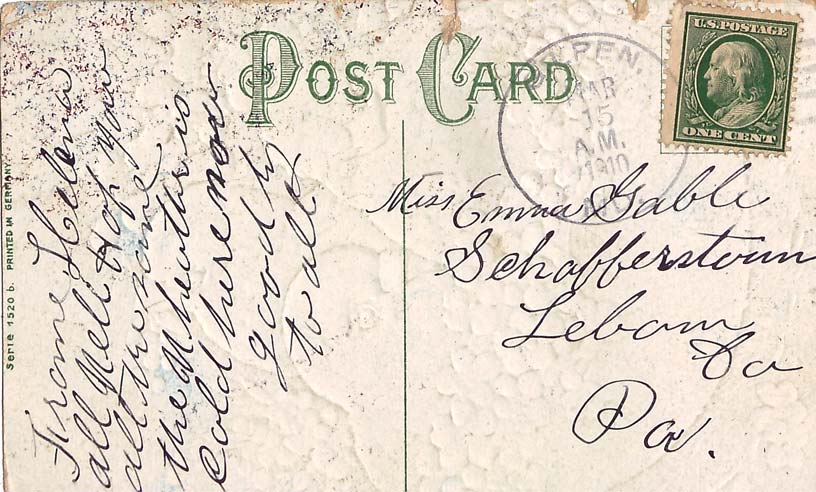 POST CARD
PEN.
MAR
15
A.M.
1910
U.S. POSTAGE
ONE CENT
Miss Emma Gable
Schafferstown
Lebanon
Co
Pa.
Frome Helena
all Well Hop you
all the same
the Wheather is
Cold here now
good by
to all
Serie 1520 b. PRINTED IN GERMANY